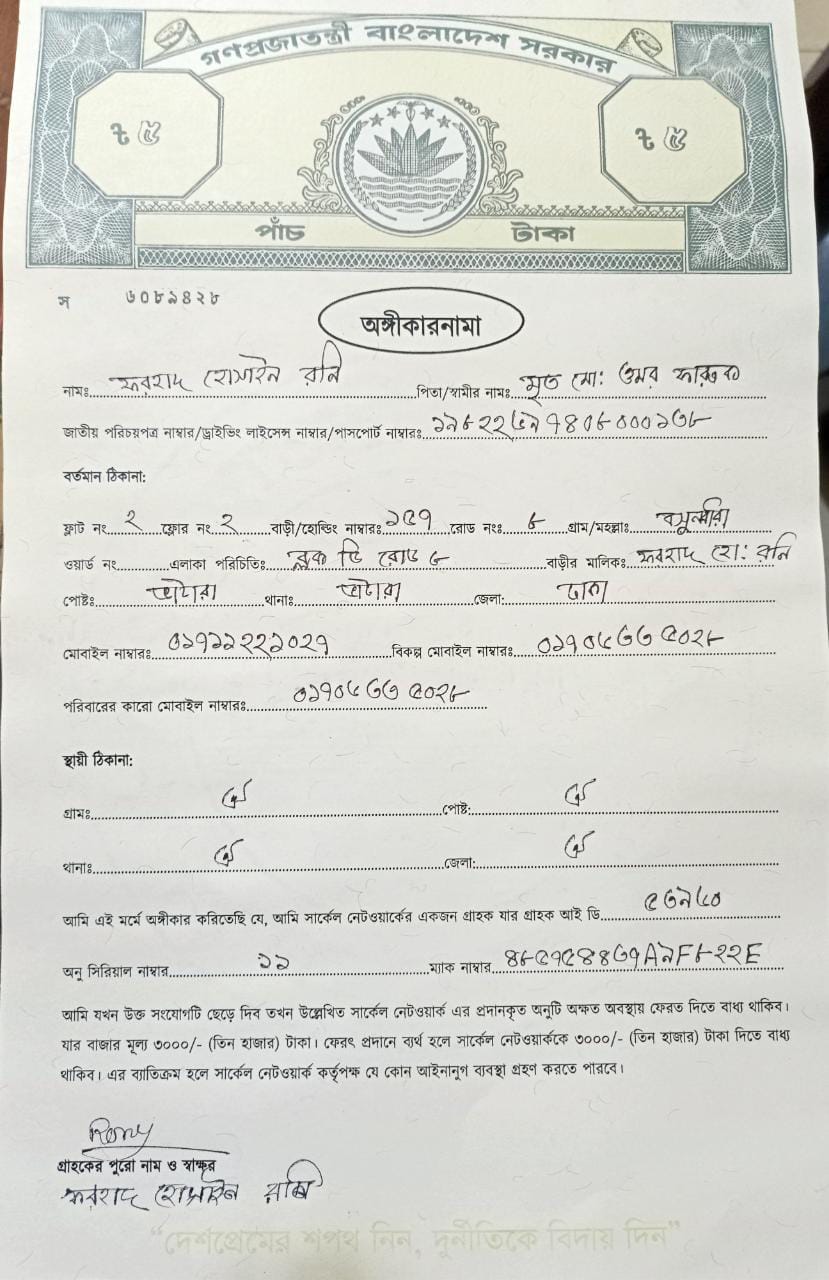 গণপ্রজাতন্ত্রী বাংলাদেশ সরকার
৳ ৫ ৳ ৫
পাঁচ টাকা
স ৬০৮৯৪২৮
অঙ্গীকারনামা
নামঃ ফরহাদ হোসাইন রনি পিতা/স্বামীর নামঃ মৃত মো: ওমর ফারুক
জাতীয় পরিচয়পত্র নাম্বার/ড্রাইভিং লাইসেন্স নাম্বার/পাসপোর্ট নাম্বারঃ
বর্তমান ঠিকানা:
ফ্লাট নং ২ ফ্লোর নং ২ বাড়ী/হোল্ডিং নাম্বারঃ ১৫৭ রোড নংঃ ৮ গ্রাম/মহল্লাঃ বসুন্ধরা
ওয়ার্ড নং এলাকা পরিচিতিঃ ব্লক ডি রোড ৮ বাড়ীর মালিকঃ ফরহাদ হো: রনি
পোষ্টঃ ভাটারা থানাঃ ভাটারা জেলা: ঢাকা
মোবাইল নাম্বারঃ ০১৭১১২২১০২৭ বিকল্প মোবাইল নাম্বারঃ
পরিবারের কারো মোবাইল নাম্বারঃ
স্থায়ী ঠিকানা:
গ্রামঃ ঐ পোষ্ট: ঐ
থানাঃ ঐ জেলা: ঐ
আমি এই মর্মে অঙ্গীকার করিতেছি যে, আমি সার্কেল নেটওয়ার্কের একজন গ্রাহক যার গ্রাহক আই ডি
অনু সিরিয়াল নাম্বার ১১ ম্যাক নাম্বার
আমি যখন উক্ত সংযোগটি ছেড়ে দিব তখন উল্লেখিত সার্কেল নেটওয়ার্ক এর প্রদানকৃত অনুটি অক্ষত অবস্থায় ফেরত দিতে বাধ্য থাকিব।
যার বাজার মূল্য ৩০০০/- (তিন হাজার) টাকা। ফেরৎ প্রদানে ব্যর্থ হলে সার্কেল নেটওয়ার্ককে ৩০০০/- (তিন হাজার) টাকা দিতে বাধ্য
থাকিব। এর ব্যাতিক্রম হলে সার্কেল নেটওয়ার্ক কর্তৃপক্ষ যে কোন আইনানুগ ব্যবস্থা গ্রহণ করতে পারবে।
Rony
গ্রাহকের পুরো নাম ও স্বাক্ষর
ফরহাদ হোসাইন রনি
"দেশপ্রেমের শপথ নিন, দুর্নীতিকে বিদায় দিন"